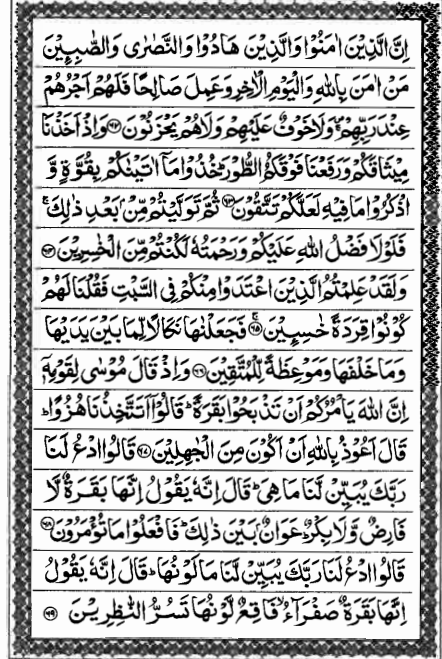 اِنَّ الَّذِيْنَ اٰمَنُوْا وَالَّذِيْنَ هَادُوْا وَالنَّصٰرٰى وَالصّٰبِـِٕيْنَ
مَنْ اٰمَنَ بِاللّٰهِ وَالْيَوْمِ الْاٰخِرِ وَعَمِلَ صَالِحًا فَلَهُمْ اَجْرُهُمْ
عِنْدَ رَبِّهِمْ وَلَا خَوْفٌ عَلَيْهِمْ وَلَا هُمْ يَحْزَنُوْنَ ﴿۶۲﴾ وَاِذْ اَخَذْنَا
مِيْثَاقَكُمْ وَرَفَعْنَا فَوْقَكُمُ الطُّوْرَ خُذُوْا مَآ اٰتَيْنٰكُمْ بِقُوَّةٍ وَّ
اذْكُرُوْا مَا فِيْهِ لَعَلَّكُمْ تَتَّقُوْنَ ﴿۶۳﴾ ثُمَّ تَوَلَّيْتُمْ مِّنْۢ بَعْدِ ذٰلِكَ ۚ
فَلَوْلَا فَضْلُ اللّٰهِ عَلَيْكُمْ وَرَحْمَتُهٗ لَكُنْتُمْ مِّنَ الْخٰسِرِيْنَ ﴿۶۴﴾
وَلَقَدْ عَلِمْتُمُ الَّذِيْنَ اعْتَدَوْا مِنْكُمْ فِى السَّبْتِ فَقُلْنَا لَهُمْ
كُوْنُوْا قِرَدَةً خٰسِـِٕيْنَ ﴿۶۵﴾ ۚ فَجَعَلْنٰهَا نَكَالًا لِّمَا بَيْنَ يَدَيْهَا
وَمَا خَلْفَهَا وَمَوْعِظَةً لِّلْمُتَّقِيْنَ ﴿۶۶﴾ وَاِذْ قَالَ مُوْسٰى لِقَوْمِهٖٓ
اِنَّ اللّٰهَ يَاْمُرُكُمْ اَنْ تَذْبَحُوْا بَقَرَةً ؕ قَالُوْٓا اَتَتَّخِذُنَا هُزُوًا ؕ
قَالَ اَعُوْذُ بِاللّٰهِ اَنْ اَكُوْنَ مِنَ الْجٰهِلِيْنَ ﴿۶۷﴾ قَالُوا ادْعُ لَنَا
رَبَّكَ يُبَيِّنْ لَّنَا مَا هِىَ ؕ قَالَ اِنَّهٗ يَقُوْلُ اِنَّهَا بَقَرَةٌ لَّا
فَارِضٌ وَّلَا بِكْرٌ ؕ عَوَانٌۢ بَيْنَ ذٰلِكَ ؕ فَافْعَلُوْا مَا تُؤْمَرُوْنَ ﴿۶۸﴾
قَالُوا ادْعُ لَنَا رَبَّكَ يُبَيِّنْ لَّنَا مَا لَوْنُهَا ؕ قَالَ اِنَّهٗ يَقُوْلُ
اِنَّهَا بَقَرَةٌ صَفْرَآءُ ۙ فَاقِعٌ لَّوْنُهَا تَسُرُّ النّٰظِرِيْنَ ﴿۶۹﴾